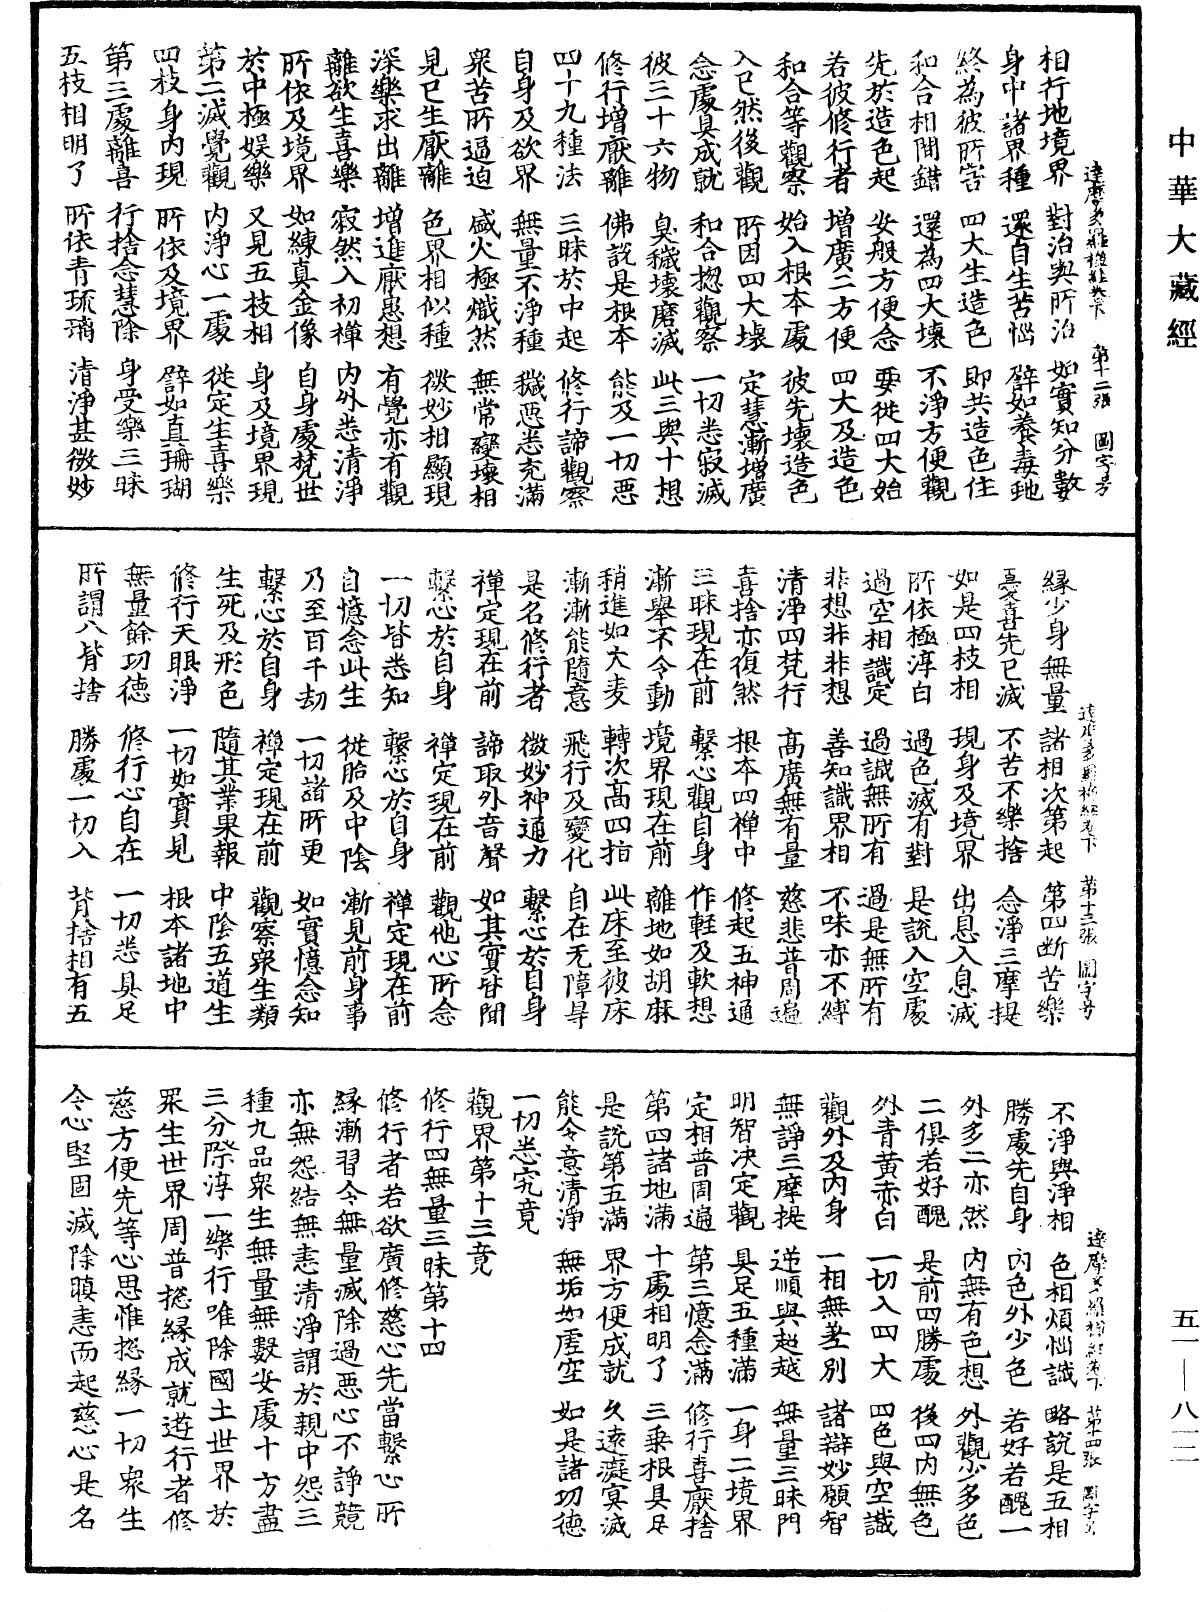 中華大藏經
達摩多羅禪經卷下　第十二張　圖字号
相行地境界　對治與所治　如實知分數
身中諸界種　還自生苦惱　譬如養毒虵
終為彼所害　四大生造色　即共造色住
和合相間錯　還為四大壞　不淨方便觀
先於造色起　安般方便念　要從四大始
若彼修行者　增廣二方便　四大及造色
和合等觀察　始入根本處　彼先壞造色
入已然後觀　所因四大壞　定慧漸增廣
念處具成就　和合揔觀察　一切悉寂滅
彼三十六物　臭穢壞磨滅　此三與十想
修行增厭離　佛說是根本　能及一切惡
四十九種法　三昧於中起　修行諦觀察
自身及欲界　無量不淨種　穢惡悉充滿
眾苦所逼迫　盛火極熾然　無常變壞相
見已生厭離　色界相似種　微妙相顯現
深樂求出離　增進厭患想　有覺亦有觀
離欲生喜樂　寂然入初禪　內外悉清淨
所依及境界　如練真金像　自身處梵世
於中極娛樂　又見五枝相　身及境界現
第二滅覺觀　內淨心一處　從定生喜樂
四枝身內現　所依及境界　譬如真珊瑚
第三處離喜　行捨念慧除　身受樂三昧
五枝相明了　所依青琉璃　清淨甚微妙
達摩多羅禪經卷下　第十三張　圖字号
緣少身無量　諸相次第起　第四斷苦樂
憂喜先已滅　不苦不樂捨　念淨三摩提
如是四枝相　現身及境界　出息入息滅
所依極淳白　過色滅有對　是說入空處
過空相識定　過識無所有　過是無所有
非想非非想　善知識界相　不味亦不縛
清淨四梵行　高廣無有量　慈悲普周遍
喜捨亦復然　根本四禪中　修起五神通
三昧現在前　繫心觀自身　作輕及軟想
漸舉不令動　境界現在前　離地如胡麻
稍進如大麦　轉次高四指　此床至彼床
漸漸能隨意　飛行及變化　自在无障㝵
是名修行者　微妙神通力　繫心於自身
禪定現在前　諦取外音聲　如其實皆聞
繫心於自身　禪定現在前　觀他心所念
一切皆悉知　繫心於自身　禪定現在前
自憶念此生　從胎及中陰　漸見前身事
乃至百千劫　一切諸所更　如實憶念知
繫心於自身　禪定現在前　觀察眾生類
生死及形色　隨其業果報　中陰五道生
修行天眼淨　一切如實見　根本諸地中
無量餘功德　修行心自在　一切悉具足
所謂八背捨　勝處一切入　背捨相有五
達摩多羅禪經卷下　第十四張　圖字号
不淨與淨相　色相煩惱識　略說是五相
勝處先自身　內色外少色　若好若醜一
外多二亦然　內無有色想　外觀少多色
二俱若好醜　是前四勝處　後四內無色
外青黃赤白　一切入四大　四色與空識
觀外及內身　一相無差別　諸辯妙願智
無諍三摩提　逆順與超越　無量三昧門
明智決定觀　具足五種滿　一身二境界
定相普周遍　第三憶念滿　修行喜厭捨
第四諸地滿　十處相明了　三乘根具足
是說第五滿　界方便成就　久遠癡冥滅
能令意清淨　無垢如虛空　如是諸功德
一切悉究竟
觀界第十三竟
修行四無量三昧第十四
修行者若欲廣修慈心先當繫心所
緣漸習令無量滅除過惡心不諍競
亦無怨結無恚清淨謂於親中怨三
種九品眾生無量無數安處十方盡
三分際淳一樂行唯除國土世界於
眾生世界周普揔緣成就遊行者修
慈方便先等心思惟揔緣一切眾生
令心堅固滅除瞋恚而起慈心是名
五一—八一二